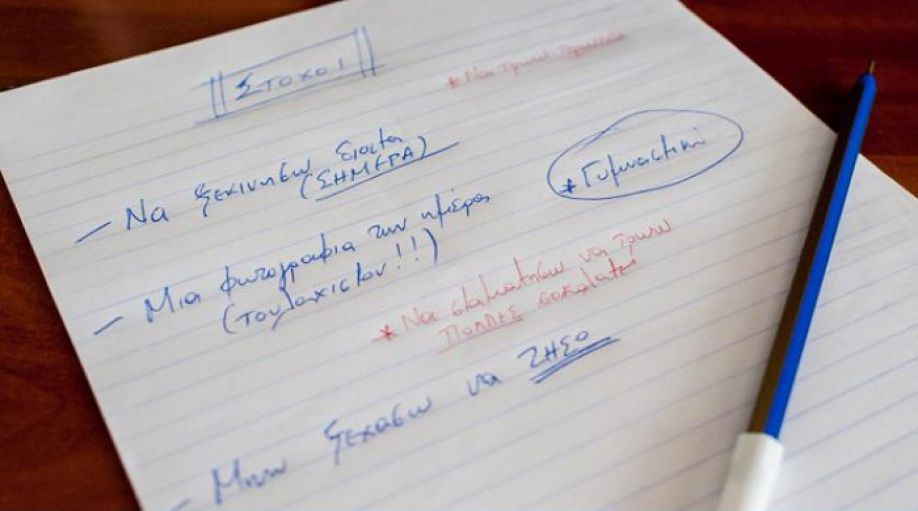 ΣΤΟΧΟΙ
* Να τρωω
– Να ξεκινησω διαιτα
(ΣΗΜΕΡΑ)
* Γυμναστικη
– Μια φωτογραφια την ημερα
(τουλαχιστον!!!)
* Να σταματησω να τρωω
ΠΟΛΛΕΣ σοκολατες
– Μην ξεχασω να ΖΗΣΩ